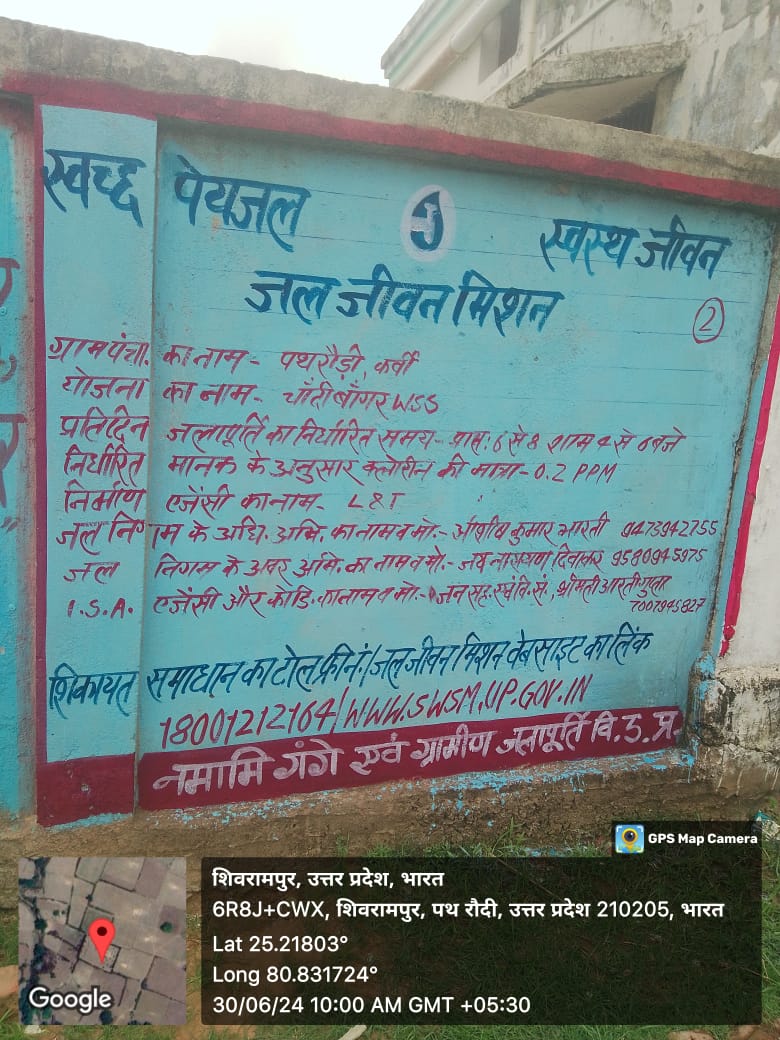 स्वच्छ पेयजल स्वस्थ जीवन
जल जीवन मिशन
2
ग्राम पंचा. का नाम - पथरौड़ी, कर्वी
योजना का नाम - चाँदी बाँगर WSS
प्रतिदिन जलापूर्ति का निर्धारित समय - प्रातः 6 से 8 शाम 4 से 6 बजे
निर्धारित मानक के अनुसार क्लोरीन की मात्रा - 0.2 PPM
निर्माण एजेंसी का नाम - L&T
जल निगम के अधि. अभि. का नाम व मो. - आशीष कुमार भारती 9473942755
जल निगम के अवर अभि. का नाम व मो. - जय नारायण दिवाकर 9580945975
I.S.A. एजेंसी और कोर्डि. का नाम व मो. - जन सह. एवं वि. सं., श्रीमती आरती गुप्ता
7007945827
शिकायत समाधान का टोल फ्री नं. / जल जीवन मिशन वेबसाइट का लिंक
18001212164 / WWW.SWSM.UP.GOV.IN
नमामि गंगे एवं ग्रामीण जलापूर्ति वि. उ. प्र.
GPS Map Camera
शिवरामपुर, उत्तर प्रदेश, भारत
6R8J+CWX, शिवरामपुर, पथ रौदी, उत्तर प्रदेश 210205, भारत
Lat 25.21803°
Long 80.831724°
30/06/24 10:00 AM GMT +05:30
Google